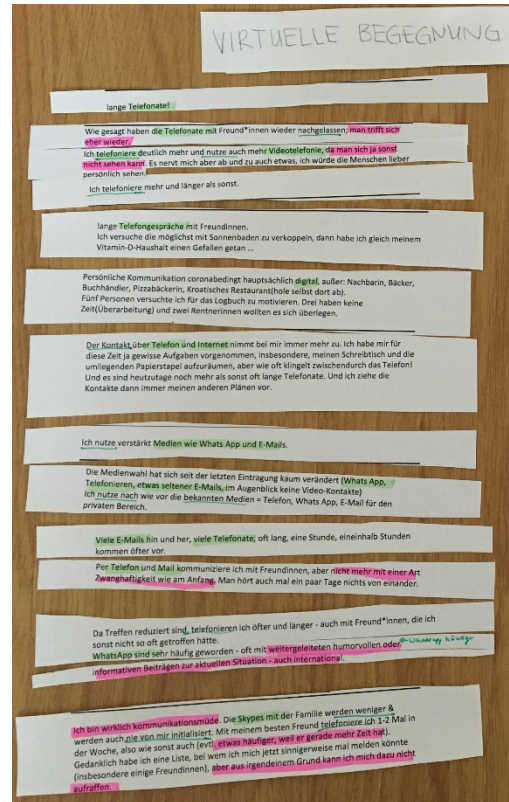 VIRTUELLE BEGEGNUNG
lange Telefonate!
Wie gesagt haben die Telefonate mit Freund*innen wieder nachgelassen; man trifft sich
eher wieder.
Ich telefoniere deutlich mehr und nutze auch mehr Videotelefonie, da man sich ja sonst
nicht sehen kann. Es nervt mich aber ab und zu auch etwas, ich würde die Menschen lieber
persönlich sehen.
Ich telefoniere mehr und länger als sonst.
lange Telefongespräche mit Freundinnen.
Ich versuche die möglichst mit Sonnenbaden zu verkoppeln, dann habe ich gleich meinem
Vitamin-D-Haushalt einen Gefallen getan ...
Persönliche Kommunikation coronabedingt hauptsächlich digital, außer: Nachbarin, Bäcker,
Buchhändler, Pizzabäckerin, Kroatisches Restaurant(hole selbst dort ab).
Fünf Personen versuchte ich für das Logbuch zu motivieren. Drei haben keine
Zeit(Überarbeitung) und zwei Rentnerinnen wollten es sich überlegen.
Der Kontakt über Telefon und Internet nimmt bei mir immer mehr zu. Ich habe mir für
diese Zeit ja gewisse Aufgaben vorgenommen, insbesondere, meinen Schreibtisch und die
umliegenden Papierstapel aufzuräumen, aber wie oft klingelt zwischendurch das Telefon!
Und es sind heutzutage noch mehr als sonst oft lange Telefonate. Und ich ziehe die
Kontakte dann immer meinen anderen Plänen vor.
Ich nutze verstärkt Medien wie Whats App und E-Mails.
Die Medienwahl hat sich seit der letzten Eintragung kaum verändert (Whats App,
Telefonieren, etwas seltener E-Mails, im Augenblick keine Video-Kontakte)
Ich nutze nach wie vor die bekannten Medien = Telefon, Whats App, E-Mail für den
privaten Bereich.
Viele E-Mails hin und her, viele Telefonate, oft lang, eine Stunde, eineinhalb Stunden
kommen öfter vor.
Per Telefon und Mail kommuniziere ich mit Freundinnen, aber nicht mehr mit einer Art
Zwanghaftigkeit wie am Anfang. Man hört auch mal ein paar Tage nichts von einander.
Da Treffen reduziert sind, telefonieren ich öfter und länger - auch mit Freund*innen, die ich
sonst nicht so oft getroffen hätte.
WhatsApp sind sehr häufig geworden - oft mit weitergeleiteten humorvollen oder WhatsApp häufiger
informativen Beiträgen zur aktuellen Situation - auch international.
Ich bin wirklich kommunikationsmüde. Die Skypes mit der Familie werden weniger &
werden auch nie von mir initialisiert. Mit meinem besten Freund telefoniere ich 1-2 Mal in
der Woche, also wie sonst auch (evtl. etwas häufiger, weil er gerade mehr Zeit hat).
Gedanklich habe ich eine Liste, bei wem ich mich jetzt sinnigerweise mal melden könnte
(insbesondere einige Freundinnen), aber aus irgendeinem Grund kann ich mich dazu nicht
aufraffen.